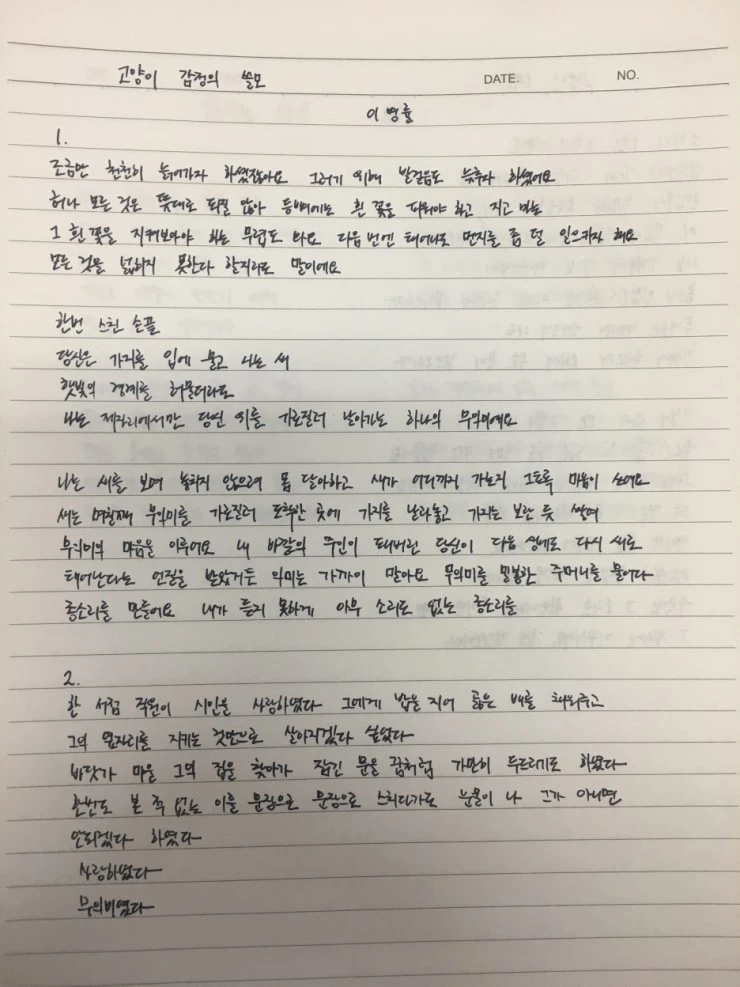 고양이 감정의 쓸모
DATE. NO.
이병률
1.
조금만 천천히 늙어가자 하였잖아요 그러기 위해 발걸음도 늦추자 하였어요
허나 모든 것은 뜻대로 되질 않아 등뼈에는 흰 꽃을 피워야 하고 지고 마는
그 흰 꽃을 지켜보아야 하는 무렵도 와요 다음 번엔 태어나도 먼지를 좀 덜 일으키자 해요
모든 것을 넓히지 못한다 할지라도 말이에요
한번 스친 손끝
당신은 가지를 입에 물고 나는 새
햇빛의 경계를 허물더라도
나는 제자리에서만 당신 위를 가로질러 날아가는 하나의 무의미예요
나는 새를 보며 놓치지 않으려 몸 달아하고 새가 어디까지 가는지 그토록 마음이 쓰여요
새는 며칠째 무의미를 가로질러 도착한 곳에 가지를 날라놓고 가지는 보란 듯 쌓여
무의미의 마음을 이루어요 내 바깥의 주인이 돼버린 당신이 다음 생에도 다시 새로
태어난다는 언질을 받았거든 의미는 가까이 말아요 무의미를 밀봉한 주머니를 물어다
종소리를 만들어요 내가 듣지 못하게 아무 소리도 없는 종소리를
2.
한 서점 직원이 시인을 사랑하였다 그에게 밥을 지어 곯은 배를 채워주고
그의 옆자리를 지키는 것만으로 살아지겠다 싶었다
바닷가 마을 그의 집을 찾아가 잠긴 문을 꿈처럼 가만히 두드리기도 하였다
한번도 본 적 없는 이를 문장으로 문장으로 스치다가도 눈물이 나 그가 아니면
안되겠다 하였다
사랑하였다
무의미였다